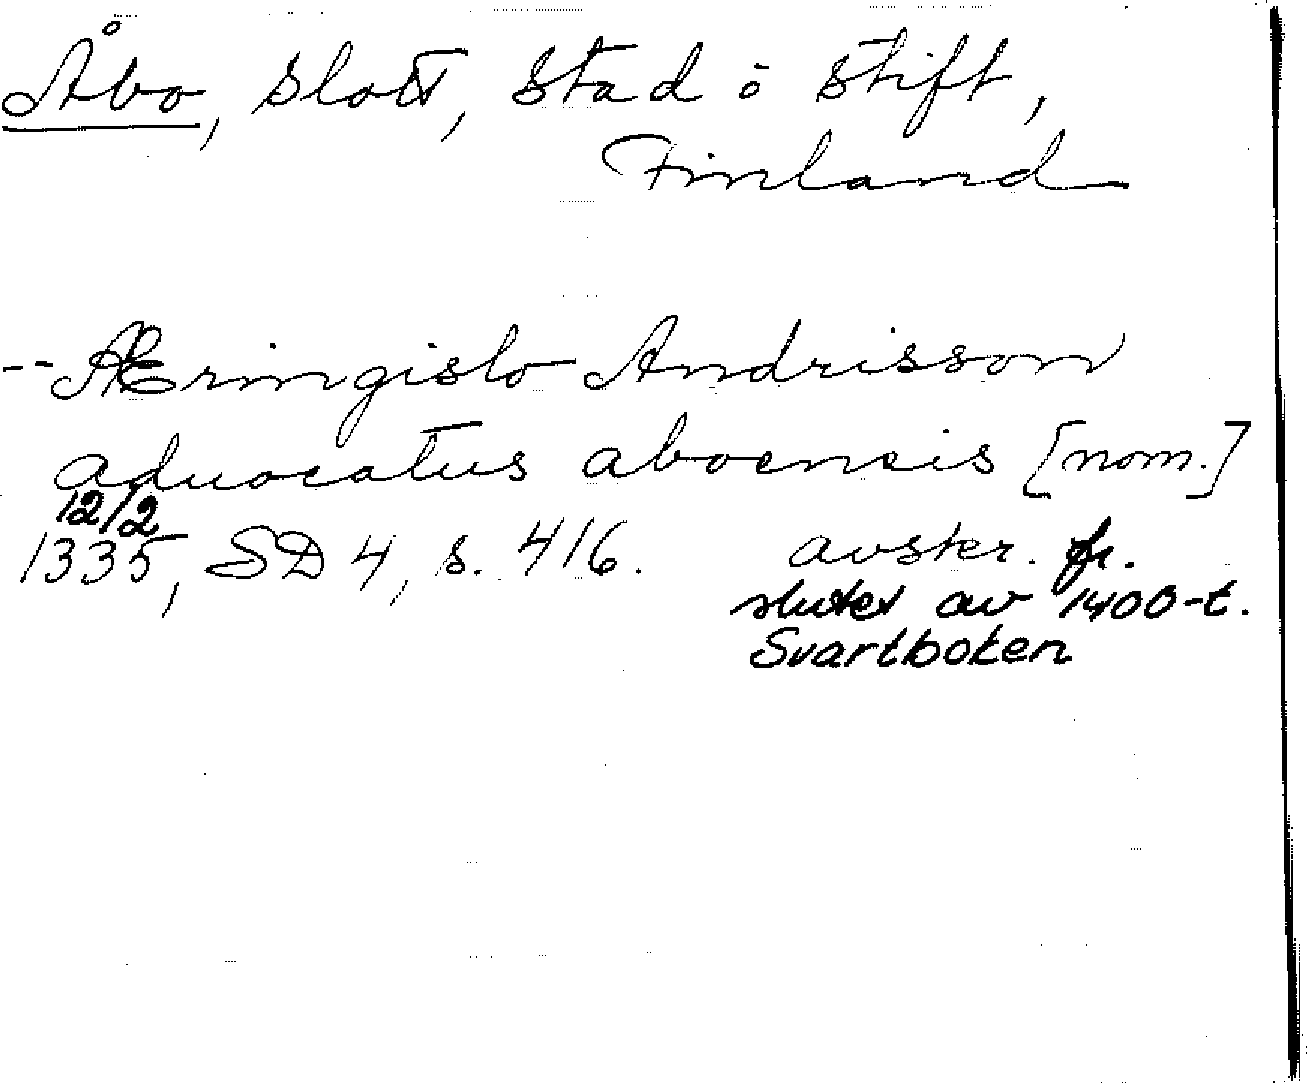 Åbo, slott, stad o stift,
Finland
-- Æringislo Andrisson
aduocatus aboensis [nom.]
12/2
1335, SD 4, s. 416. avskr. fr.
slutet av 1400-t.
Svartboken